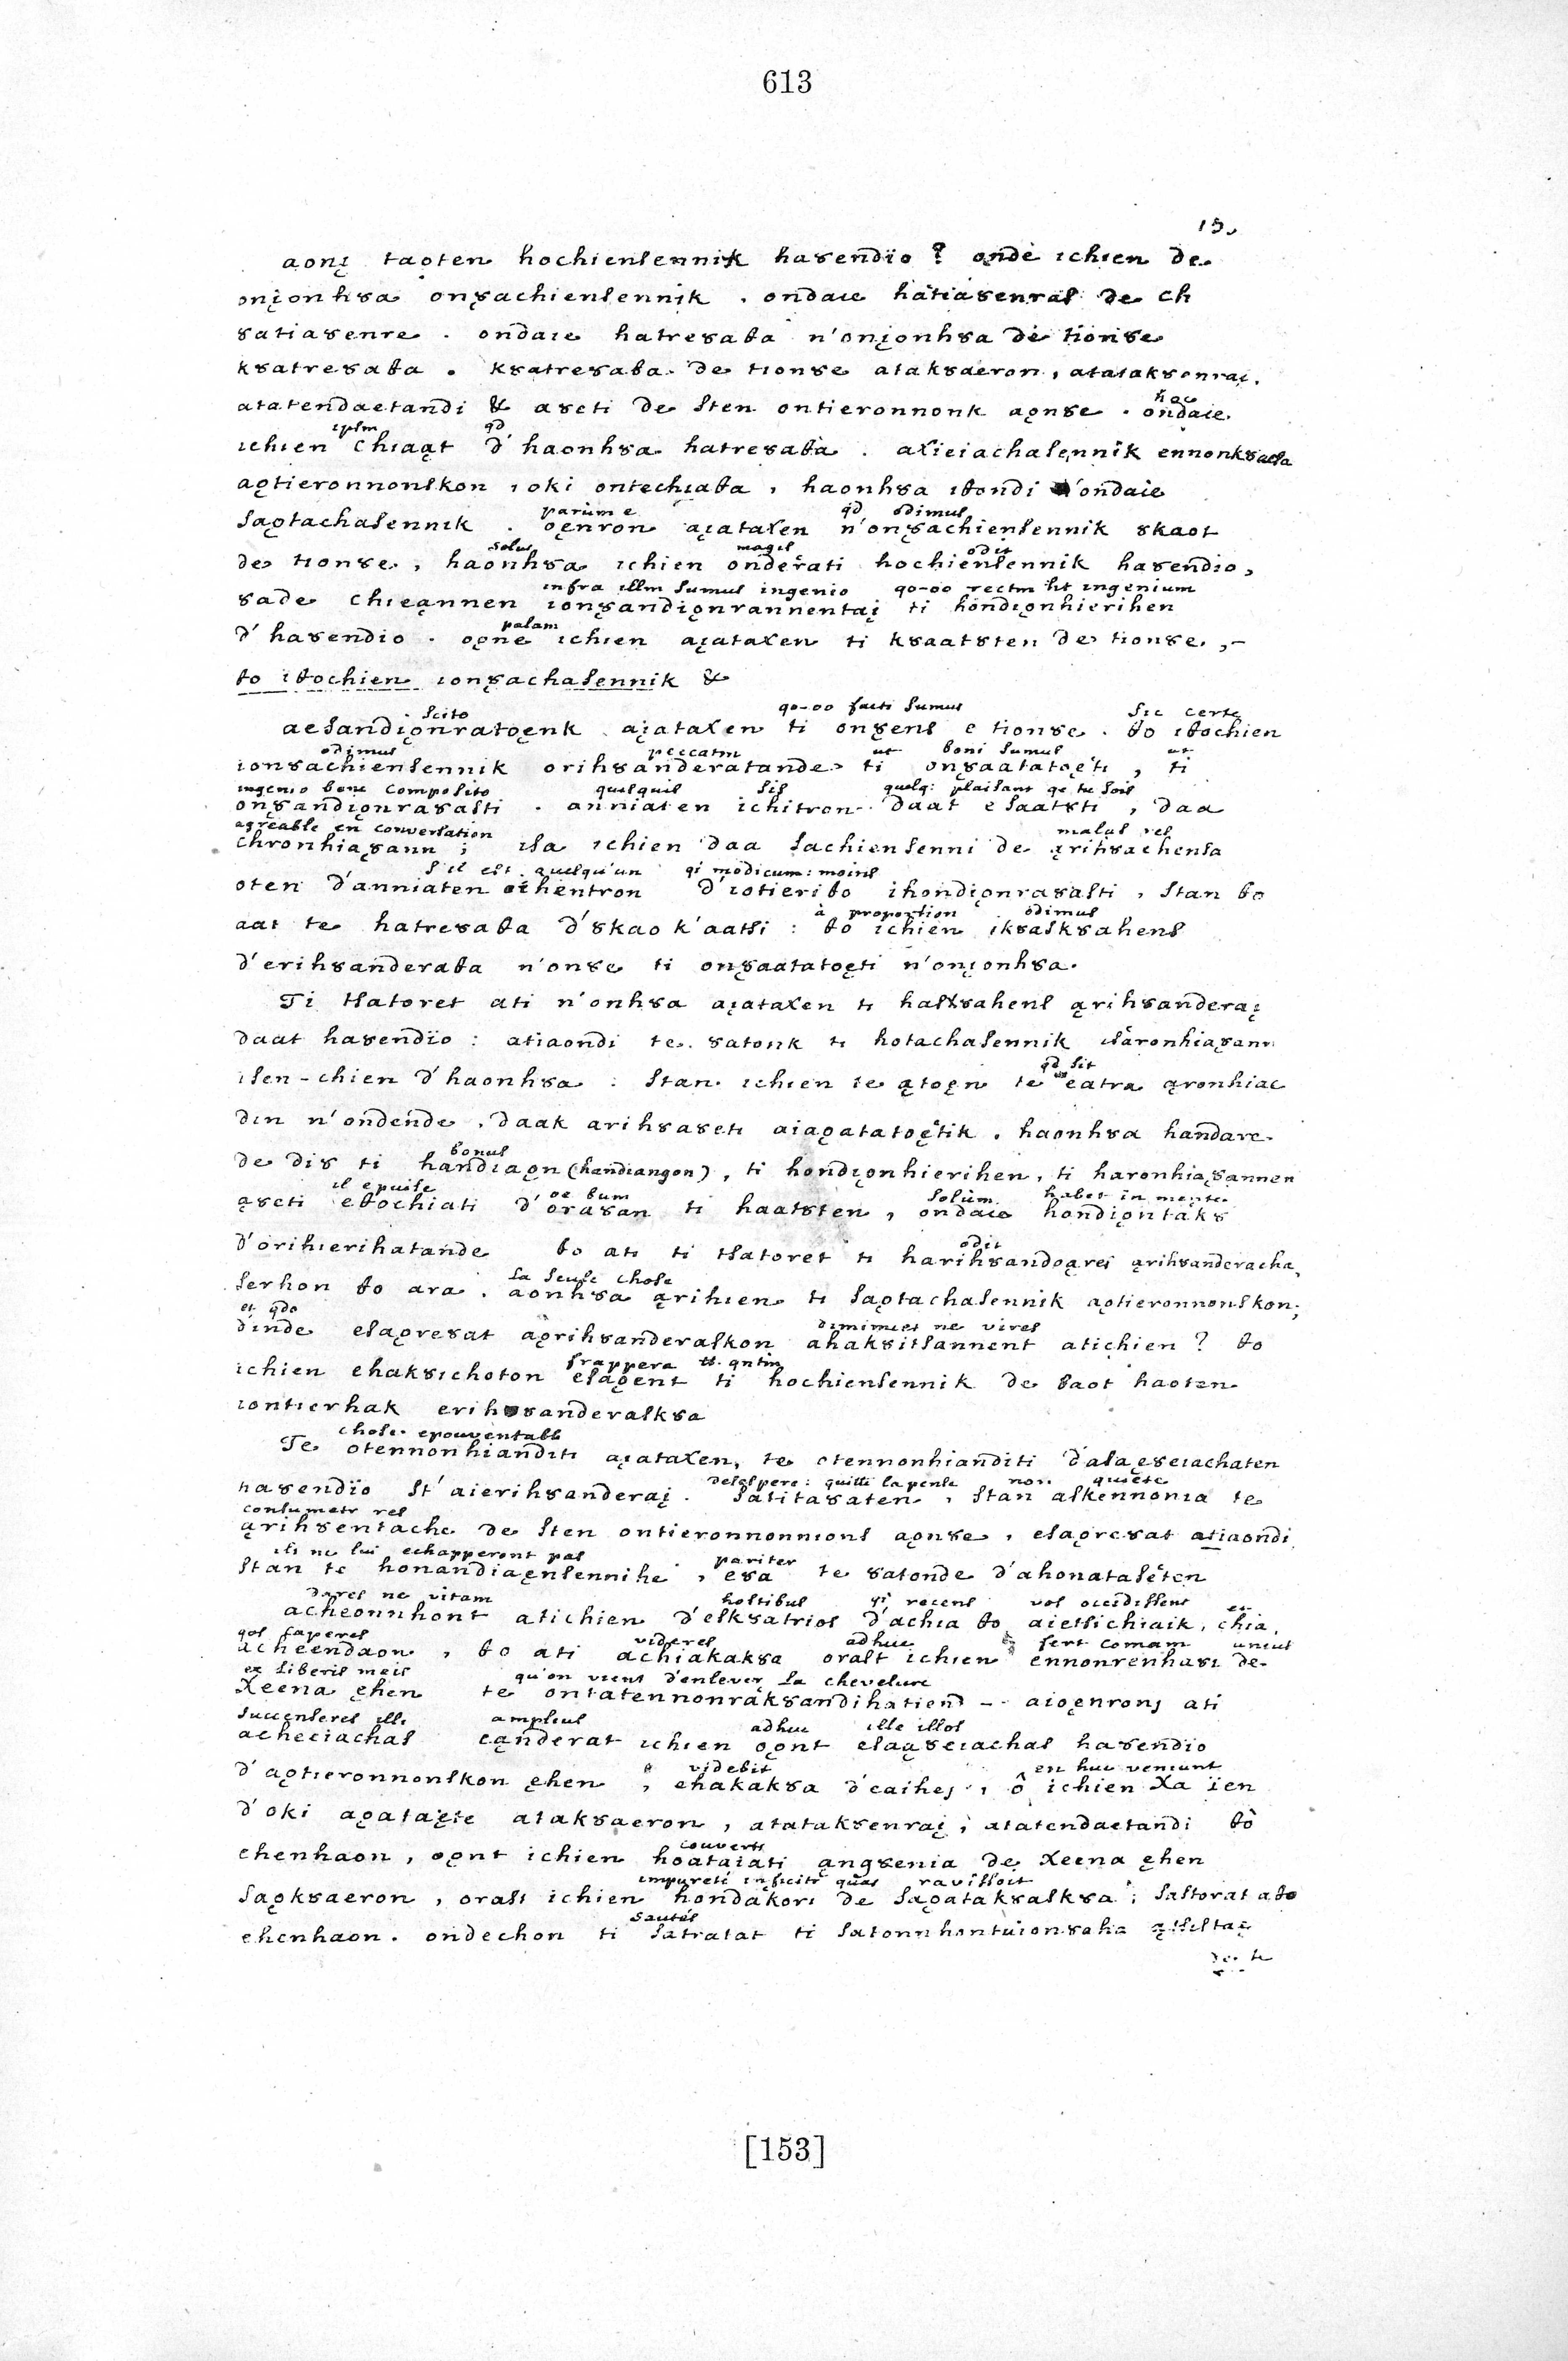 613
15.
aonį taoten hochiensennik haȣendïo ? ondè ichien de
onįonhȣa onȣ̨achiensennik . ondaie hatiaȣenras de ch
ȣatiaȣenre . ondaie hatreȣaθa n'onįonhȣa de tionȣe
kȣatreȣaθa . kȣatreȣaθa de tionȣe ataksaeron, atataksenraį.
hac
atatendaetandi & aȣeti de sten ontieronnonk aǫnȣe . ondaie
ipsm qd
ichien chiaąt d'haonhȣa hatreȣaθa . axieiachasennik ennonkȣaesa
aǫtieronnonskon , oki ontechiaθa , haonhȣa iθondi d'ondaie
parùm e qd odimus
saǫtachasennik . oęnron aįataxen n'onȣ̨achiensennik skaot
solus magis odit
de tionȣe , haonhȣa ichien onderati hochiensennik haȣendio,
infra illm sumus ingenio qo-oo rectm ht ingenium
ȣade chieąnnen ionȣ̨andiǫnrannentaį ti hondiǫnhierihen
palam
d'haȣendio . oǫne ichien aįataxen ti kȣaatȣten de tionȣe . , -
θo iθochien ionȣ̨achasennik &
scito qo-oo facti sumus sic certe
aesandiǫnratoęnk aįataxen ti onȣ̨ens e tionȣe . θo iθochien
odimus peccatm ut boni sumus ut
ionȣachiensennik orihȣanderatande ti onȣ̨aatatoęti , ti
ingenio bene composito quisquis sis quelq: plaisant qe tu sois
onȣ̨andiǫnraȣasti . anniaten ichitron daat esaatȣti , daa
agréable en conversation malus res
chronhiaȣ̨ann ; isa ichien daa sachiensenni de ąrihȣachensa
s'il est quelqu'un qi modicum: moins
oten d'anniaten ihentron d'iotieriθo ihondiǫnraȣasti , stan θo
à proportion odimus
aat te hatreȣaθa d'skao k'aatsi : θo ichien ikȣaskȣahens
d'erihȣanderaθa n'onȣe ti onȣ̨aatatoęti n'onįonhȣa.
Ti tsatoret ati n'onhȣa aįataxen ti hasxȣahens ąrihȣanderaį
daat haȣendïo : atiaondi te ȣatonk ti hotachasennik isaronhiaȣ̨ann
qd sit
isen-chien d'haonhȣa : stan ichien te ątoęn te eatra ąronhiae
din n'ondende , daak arihȣaȣeti aiaǫatatoętik . haonhȣa handare
bonus
de diȣ ti handiaǫn (handiangon) , ti hondiǫnhierihen , ti haronhiaȣ̨annen
il epuise oe bum solùm habet in mente
ąȣeti eθochiati d'oraȣan ti haatȣten , ondaie hondiǫntakȣ
odit
d'orihierihatande θo ati ti tsatoret ti harihȣandoąres ąrihȣanderacha,
la seule chose
serhon θo ara . aonhȣa ąrihien ti saǫtachasennik aǫtieronnonskon;
et qdo diminuet ne vires
d'inde esaǫreȣat aǫrihȣanderaskon ahaksitsannent atichien ? θo
frappera tt. qntm
ichien ehaksichoton esaǫent ti hochiensennik de θaot haoten
iontierhak erihȣanderaskȣa
chose epouventable
Te otennonhianditi aįataxen, te otennonhianditi d'asaęȣeiachaten
desespere: quitte la pensée non quiete
haȣendïo st'aierihȣanderaį . satitaȣaten , stan askennonia te
consumetr res
ąrihȣentache de sten ontieronnonnions aǫnȣe , esaǫreȣat atiaondi
ils ne lui echapperont pas pariter
stan te honandiaęnsennihe , esa te ȣatonde d'ahonatasēten
dares ne vitam hostibus si recens vos occidissent et
acheonnhont atichien d'eskȣatrios d'achia θo aietsichiaik , chia,
qos caperes videres adhuc fert comam unius
acheendaon , θo ati achiakaksa orast ichien ennonrenhaȣi de
ex liberis meis qu'on vient d'enlever la chevelure
xeena ęhen te ontatennonrakȣandihatiend -- aioęnrons ati
succenseres illi amplius adhuc ille illos
acheeiachas eąnderat ichien oǫnt esaąȣeiachas haȣendio
videbit en huc veniunt
d'aǫtieronnonskon ęhen , ehakaksa d'eaihes , ô ichien xa ïen
d'oki aǫataęte ataksaeron , atataksenraį , atatendaetandi θò
couverts
ehenhaon , oǫnt ichien hoataiati ąngȣenia de xeena ęhen
impureté inficitr quas ravissoit
saǫkȣaeron , orast ichien hondakori de saǫataksaskȣa ; sastorat aθo
sautés
ehenhaon . ondechon ti satratat ti satonnhontuionȣaha ątsistaę
de te
[153]